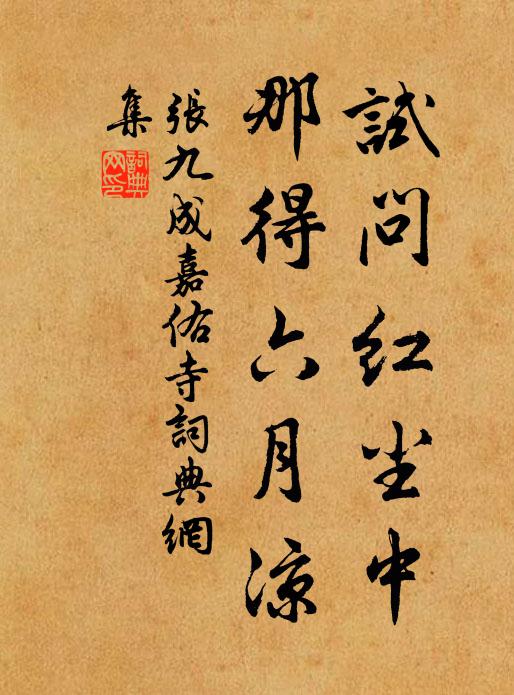 試問紅尘中
那得六月凉
張九成嘉佑寺詞典網
集
詞典網印